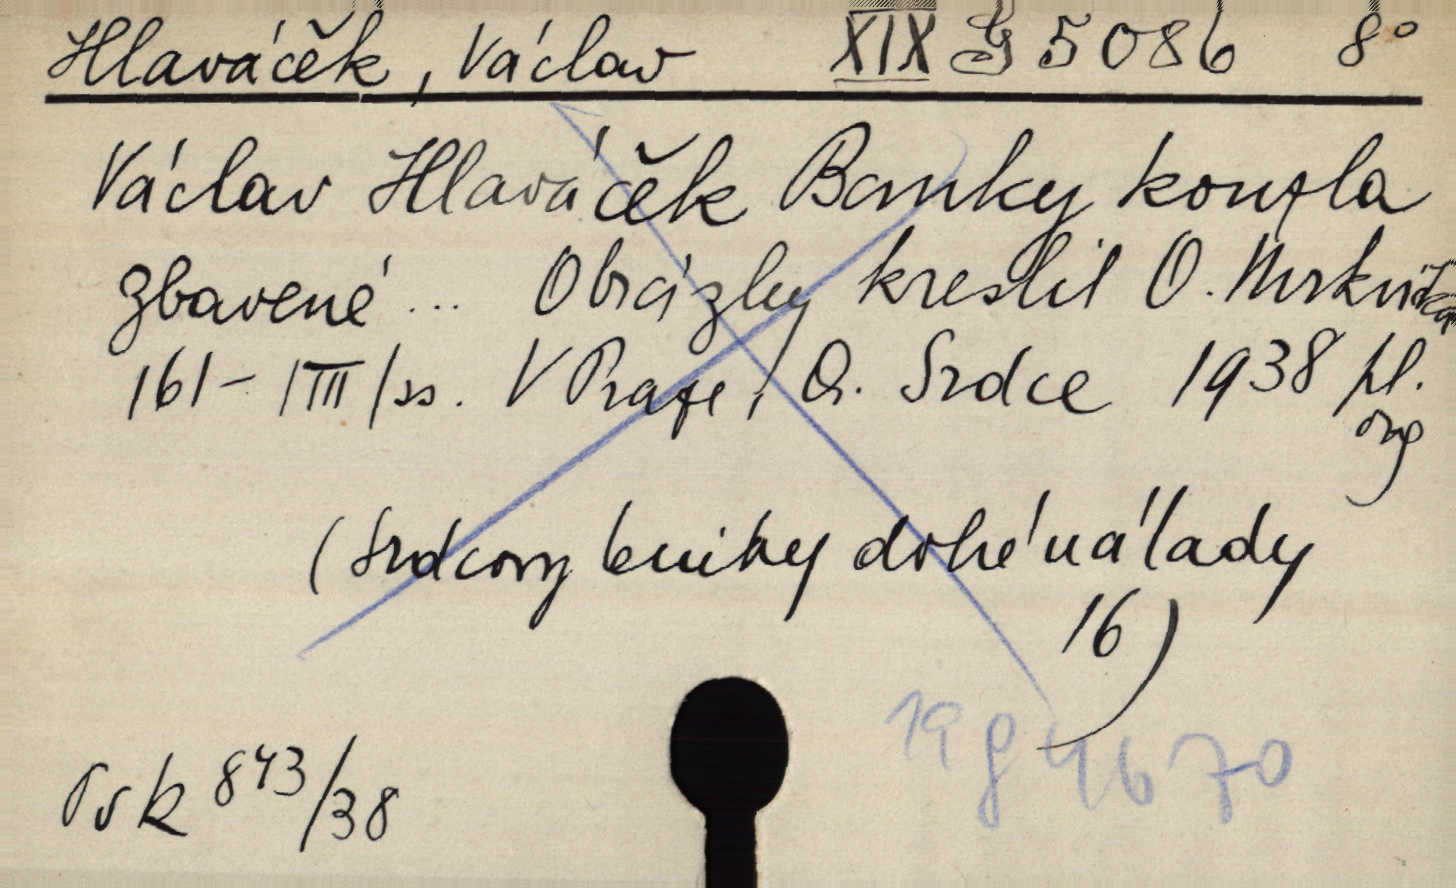 Hlaváček, Václav XIX G 5086 8°
Václav Hlaváček Banky kouzla
zbavené ... Obrázky kreslil O. Mrkvička
161 – III / ss. V Praze, Q. Srdce 1938 pl.
(Srdcovy knihy dobré nálady
16)
19 g 4670
843/38